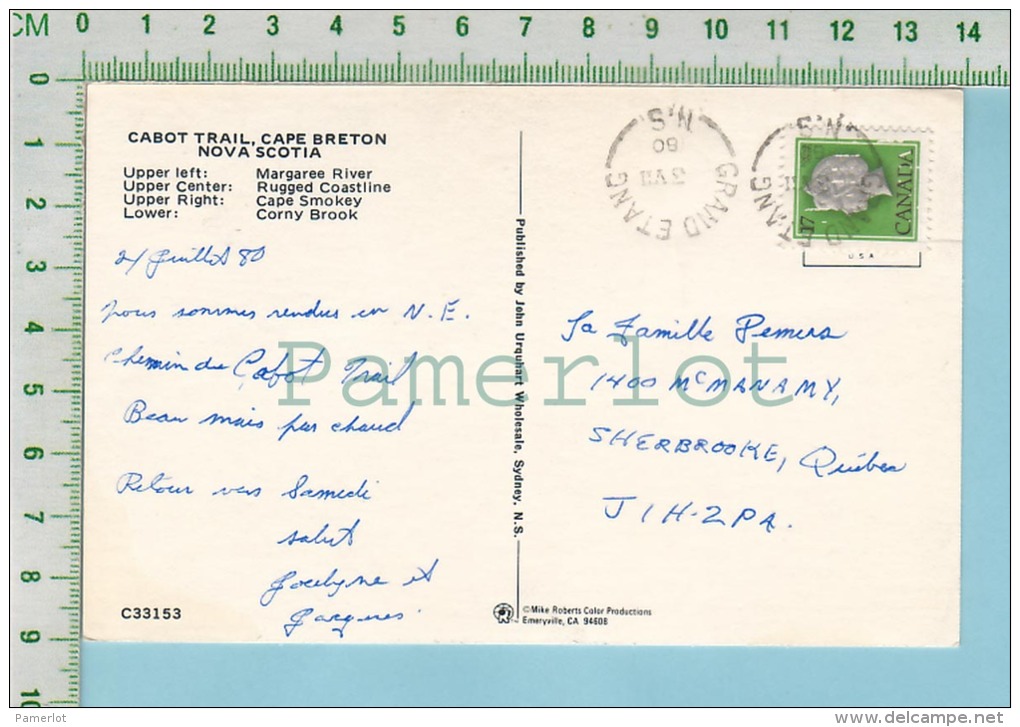 CM 0 1 2 3 4 5 6 7 8 9 10 11 12 13 14
0
1
2
3
4
5
6
7
8
9
10
CABOT TRAIL, CAPE BRETON
NOVA SCOTIA
Upper left: Margaree River
Upper Center: Rugged Coastline
Upper Right: Cape Smokey
Lower: Corny Brook
Juillet 80
nous sommes rendus en N.E.
Chemin du Cabot Trail
Beau mais pas chaud
Retour vers Samedi
salut
Jocelyne et
Jacques
C33153
Published by John Urquhart Wholesale, Sydney, N.S.
©Mike Roberts Color Productions
Emeryville, CA 94608
GRAND ETANG
N.S.
80
GRAND ETANG
N.S.
17
CANADA
USA
La Famille
1400 McMANAMY,
SHERBROOKE, Québec
J1H-2P4.
Pamerlot
Pamerlot
www.delcampe.net